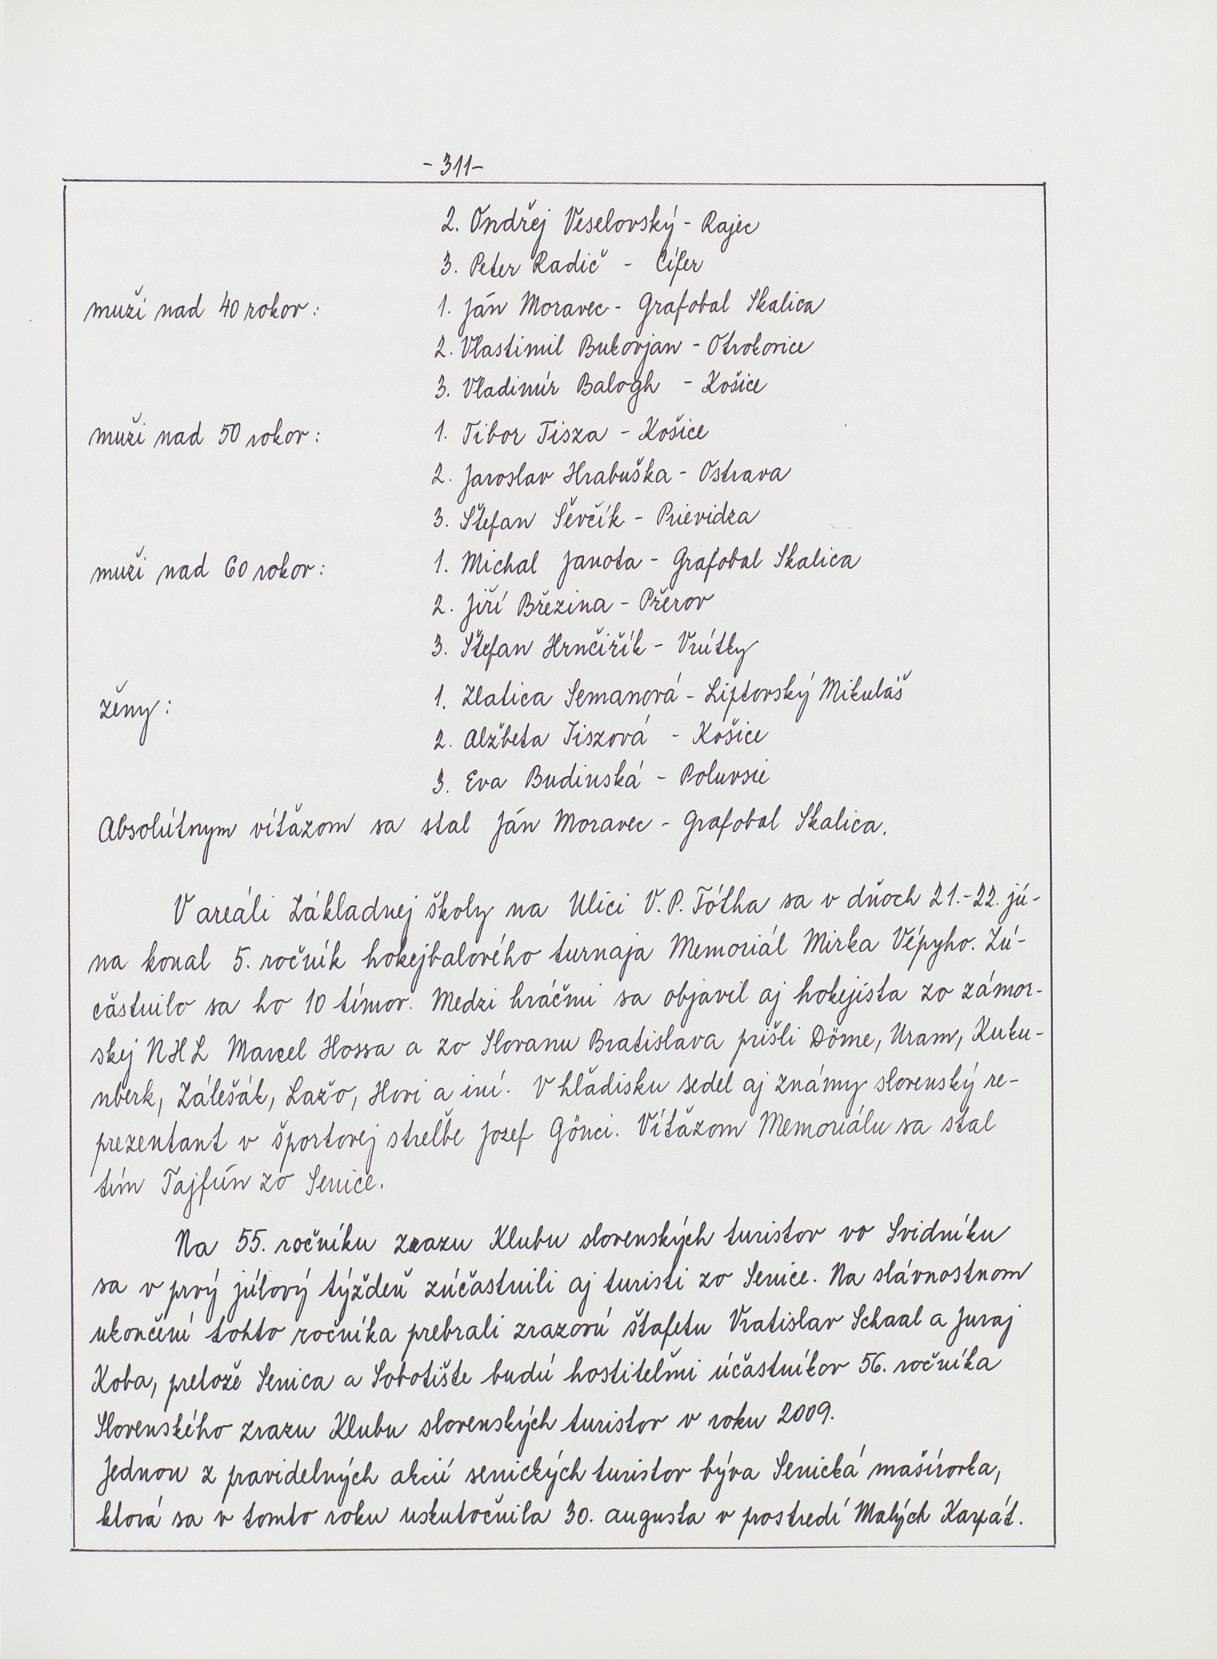 - 311 -
2. Ondřej Veselovský - Rajec
3. Peter Radič - Cífer
muži nad 40 rokov: 1. Ján Moravec - Grafobal Skalica
2. Vlastimil Bukovjan - Otrokovice
3. Vladimír Balogh - Košice
muži nad 50 rokov: 1. Tibor Tisza - Košice
2. Jaroslav Hrabuška - Ostrava
3. Štefan Ševčík - Prievidza
muži nad 60 rokov: 1. Michal Janota - Grafobal Skalica
2. Jiří Březina - Přerov
3. Štefan Hrnčiřík - Vrútky
ženy: 1. Zlatica Semanová - Liptovský Mikuláš
2. Alžbeta Tiszová - Košice
3. Eva Budinská - Poluvsie
Absolútnym víťazom sa stal Ján Moravec - Grafobal Skalica.
V areáli Základnej školy na Ulici V. P. Tótha sa v dňoch 21.-22. jú-
na konal 5. ročník hokejbalového turnaja Memoriál Mirka Vépyho. Zú-
častnilo sa ho 10 tímov. Medzi hráčmi sa objavil aj hokejista zo zámor-
skej NHL Marcel Hossa a zo Slovanu Bratislava prišli Döme, Uram, Kuku-
nberk, Zálešák, Lažo, Hovi a iní. V hľadisku sedel aj známy slovenský re-
prezentant v športovej streľbe Jozef Gönci. Víťazom Memoriálu sa stal
tím Tajfún zo Senice.
Na 55. ročníku zrazu Klubu slovenských turistov vo Svidníku
sa v prvý júlový týždeň zúčastnili aj turisti zo Senice. Na slávnostnom
ukončení tohto ročníka prebrali zrazovú štafetu Vratislav Schaal a Juraj
Koba, pretože Senica a Sobotište budú hostiteľmi účastníkov 56. ročníka
Slovenského zrazu Klubu slovenských turistov v roku 2009.
Jednou z pravidelných akcií senických turistov býva Senická mašírovka,
ktorá sa v tomto roku uskutočnila 30. augusta v prostredí Malých Karpát.